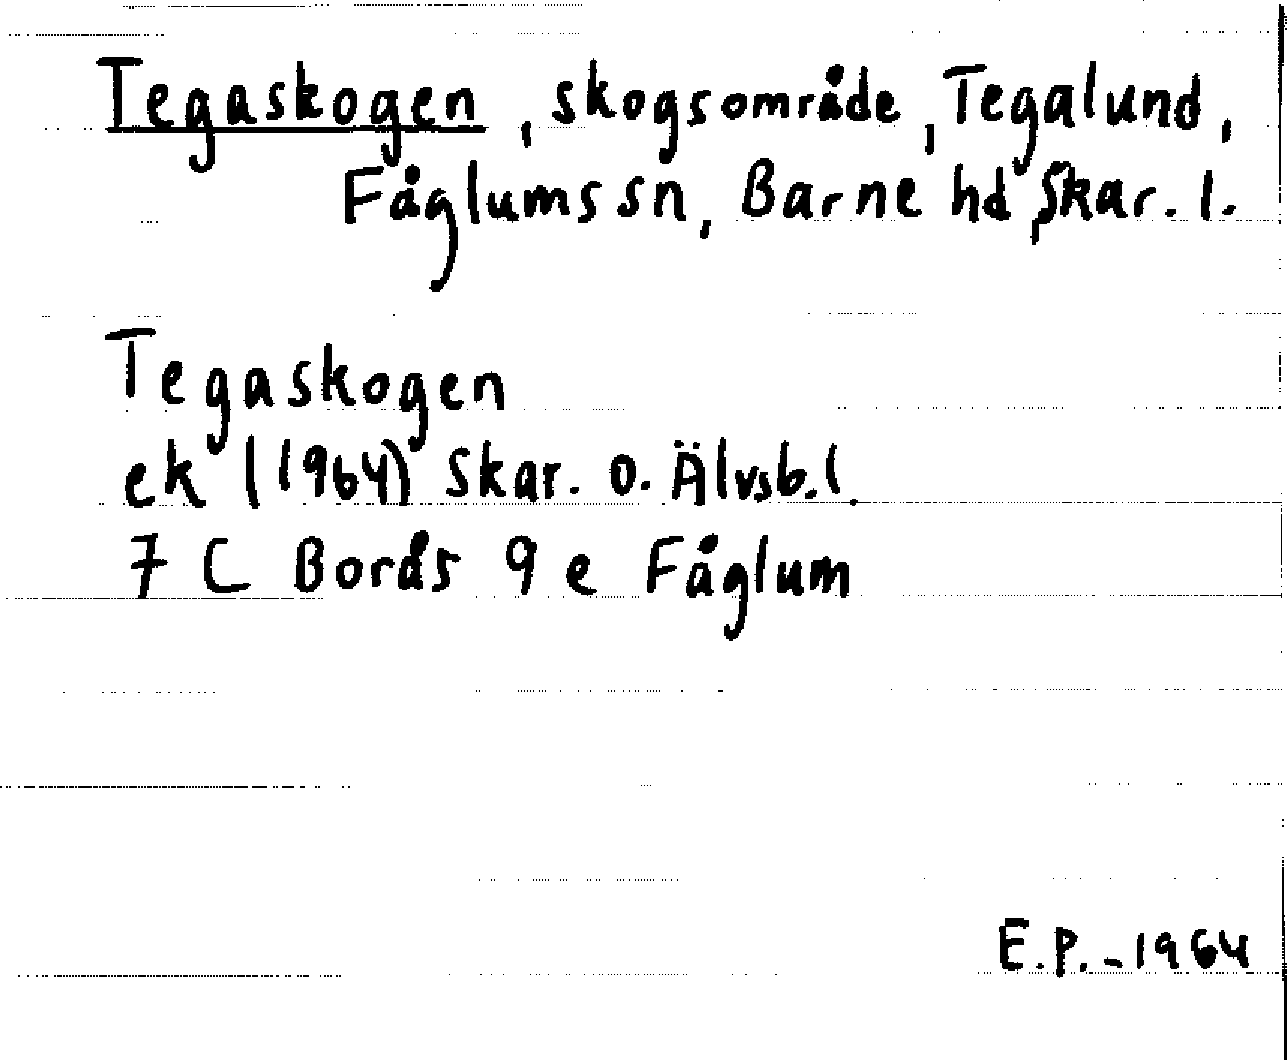 Tegaskogen, skogsområde, Tegalund,
Fåglums sn, Barne hd, Skar. l.
Tegaskogen
ek (1964) Skar. o. Älvsb. l.
7 C Borås 9 e Fåglum
E.P.-1964